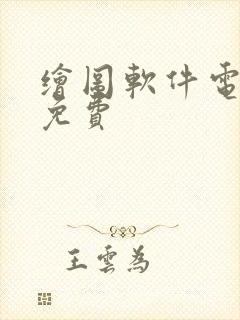 繪圖軟件電
免費
王雲為